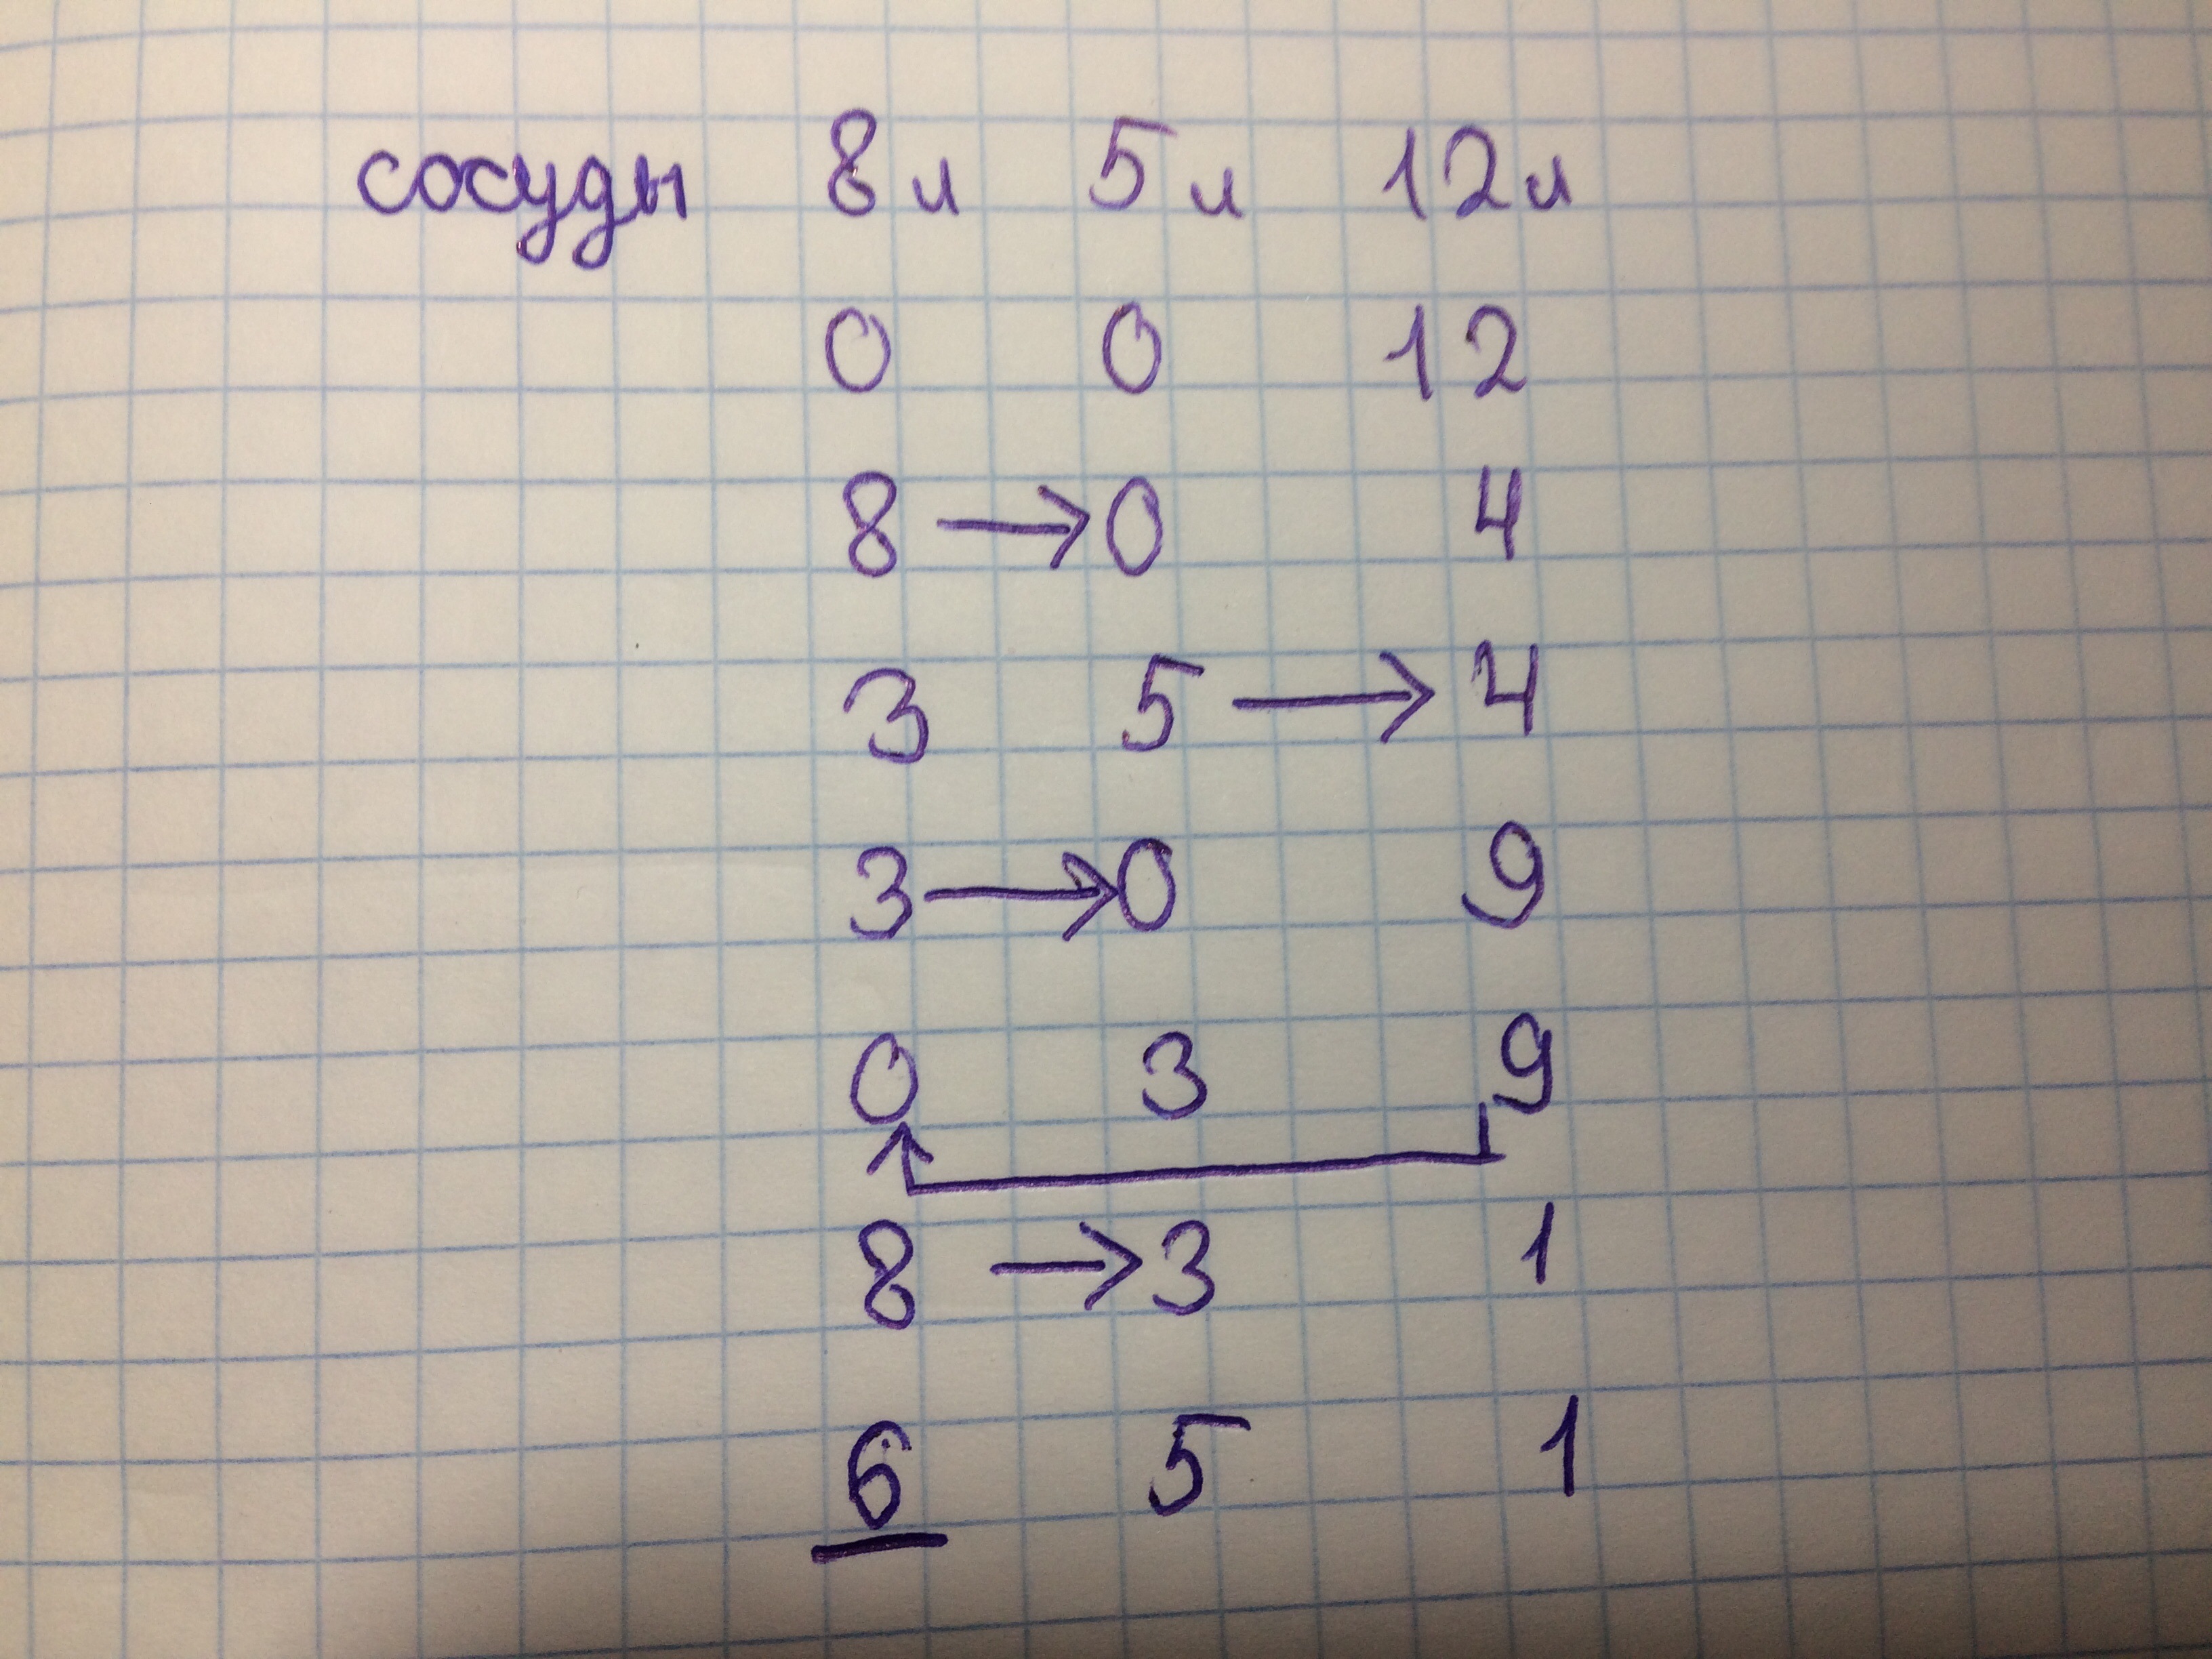 сосуды 8л 5л 12л
0 0 12
8 → 0 4
3 5 → 4
3 → 0 9
0 3 9
8 → 3 1
6 5 1